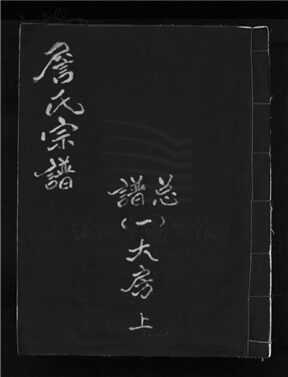 詹氏宗譜
总
譜
(一)大房
上